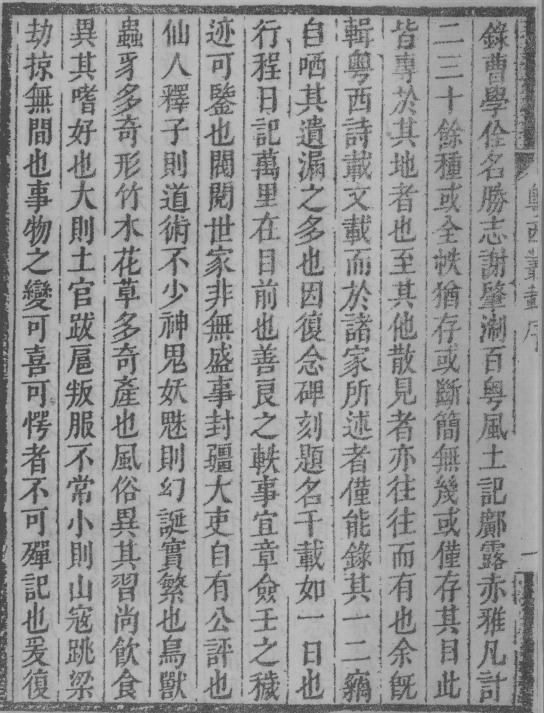 錄曹學佺名勝志謝肇淛百粤風土記鄺露赤雅凡計
二三十餘種或全帙猶存或斷簡無幾或僅存其目此
皆専於其地者也至其他散見者亦往往而有也余旣
輯粤西詩載文載而於諸家所述者僅能錄其一二竊
自哂其遺漏之多也因復念碑刻題名千載如一日也
行程日記萬里在目前也善良之軼事宜章僉壬之穢
迹可鑒也閥閱世家非無盛事封疆大吏自有公評也
仙人釋子則道術不少神鬼妖魅則幻誕實繁也鳥獸
蟲豸多奇形竹木花草多奇產也風俗異其習尚飮食
異其嗜好也大則土官跋扈叛服不常小則山寇跳梁
劫掠無間也事物之變可喜可愕者不可殫記也爰復
粤西叢載序
一